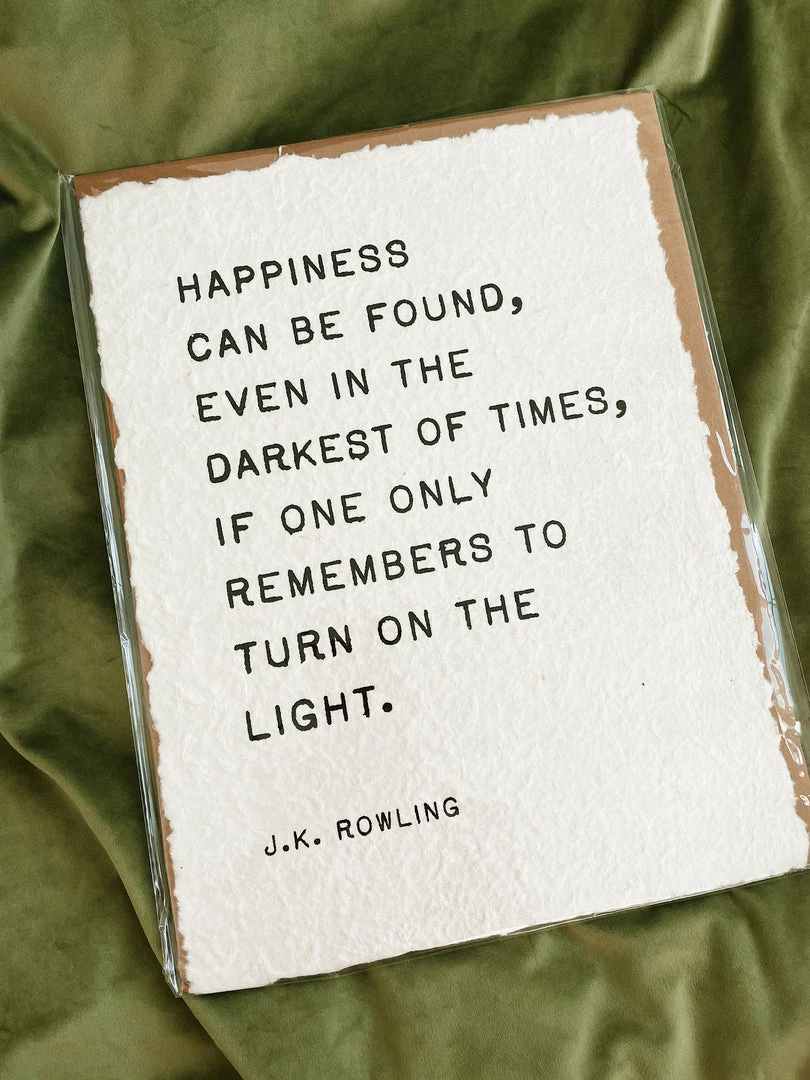 HAPPINESS
CAN BE FOUND,
EVEN IN THE
DARKEST OF TIMES,
IF ONE ONLY
REMEMBERS TO
TURN ON THE
LIGHT.
J.K. ROWLING